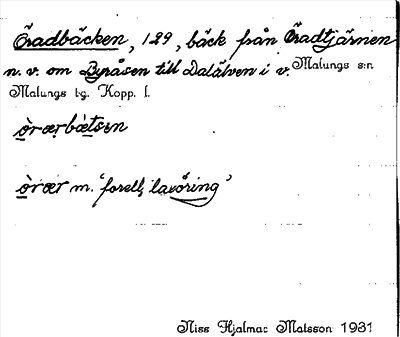 Öradbäcken, 129, bäck från Öradtjärnen
n. v. om Byråsen till Dalälven i v. Malungs s:n
Malungs tg. Kopp. l.
òrærbætsɛn
òrær m. 'forell, laxöring'
Niss Hjalmar Matsson 1931